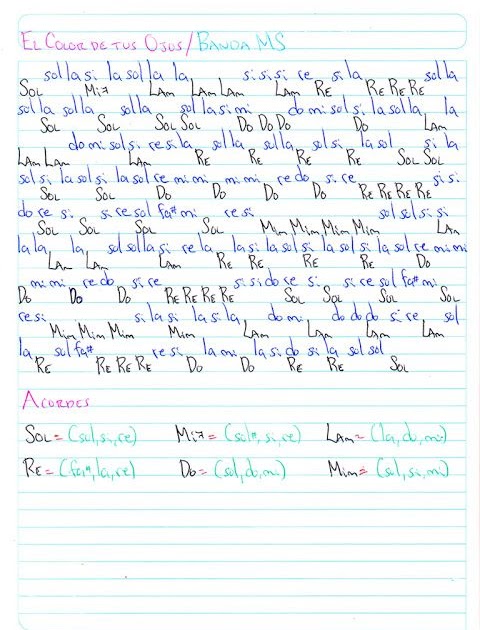 EL COLOR DE TUS OJOS / BANDA MS
sol la si la sol la la si si si re si la sol la
SOL Mi7 LAm LAm LAm LAm RE RE RE RE
sol la sol la sol la sol la si mi do mi sol si la sol la la
SOL SOL SOL SOL DO DO DO DO LAm
do mi sol si re si la sol la sol la sol si la sol si la
LAm LAm LAm RE RE RE RE SOL SOL
sol si la sol si la sol re mi mi mi mi re do si re si si
SOL SOL DO DO DO DO RE RE RE RE
do re si si re sol fa# mi re si sol sol si si
SOL SOL SOL SOL Mim Mim Mim Mim LAm
la la la sol sol la si re la la si la sol si la sol si la sol re mi mi
LAm LAm LAm RE RE RE RE DO
mi mi re do si re si si do re si si re sol fa# mi
DO DO DO RE RE RE RE SOL SOL SOL SOL
re si si la si la si la do mi do do do si re sol
Mim Mim Mim Mim LAm LAm LAm LAm
la sol fa# re si la mi la si do si la sol sol
RE RE RE RE DO DO RE RE SOL
ACORDES
SOL = (sol, si, re) Mi7 = (sol#, si, re) LAm = (la, do, mi)
RE = (fa#, la, re) DO = (sol, do, mi) Mim = (sol, si, mi)